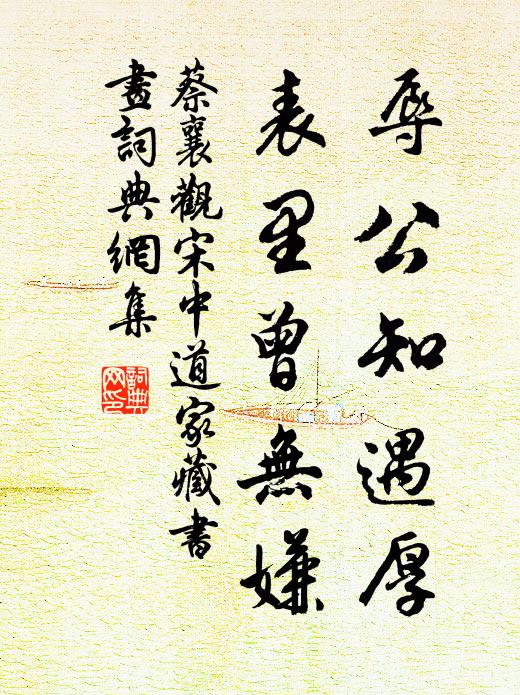 辱公知遇厚
表里曾無嫌
蔡襄觀宋中道家藏書
畫詞典網集
詞典網印